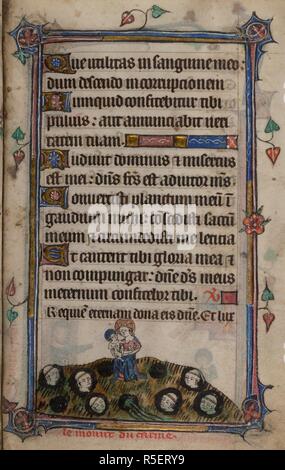 Que utilitas in sanguine meo:
dum descendo in corruptionem
Nunquid confitebitur tibi
puluis: aut annunciabit ueri
tatem tuam.
Audiuit dominus et misertus
est mei: dns fcs est adiutor ms.
Conuertisti planctum meum in
gaudium michi: conscidisti saccum
meum et circumdedisti me leticia
Ut cantet tibi gloria mea et
non compungar: dne ds meus
in eternum confitebor tibi.
Requiem eternam dona eis dne. Et lux
le mont du carme.
alamy
R5ERY9